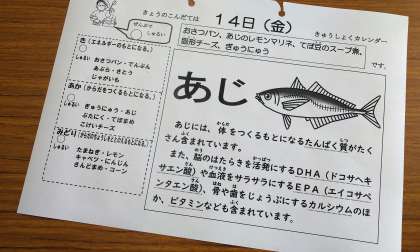 きょうのこんだては
14日(金)
きゅうしょくカレンダー
おさつパン、あじのレモンマリネ、てぼ豆のスープ煮、
固形チーズ、ぎゅうにゅう
です。
ぜんぶで
しゅるい
き(エネルギーのもとになる。)
しゅるい
おさつパン・でんぷん
あぶら・さとう
じゃがいも
あか(からだをつくるもとになる。)
しゅるい
ぎゅうにゅう・あじ
ぶたにく・てぼまめ
こけいチーズ
みどり(からだのちょうしをととのえるもとになる。)
しゅるい
たまねぎ・レモン
キャベツ・にんじん
さんどまめ・コーン
あじ
あじには、体をつくるもとになるたんぱく質がたく
さん含まれています。
また、脳のはたらきを活発にするDHA(ドコサヘキ
サエン酸)や血液をサラサラにするEPA(エイコサペ
ンタエン酸)、骨や歯をじょうぶにするカルシウムのほ
か、ビタミンなども含まれています。